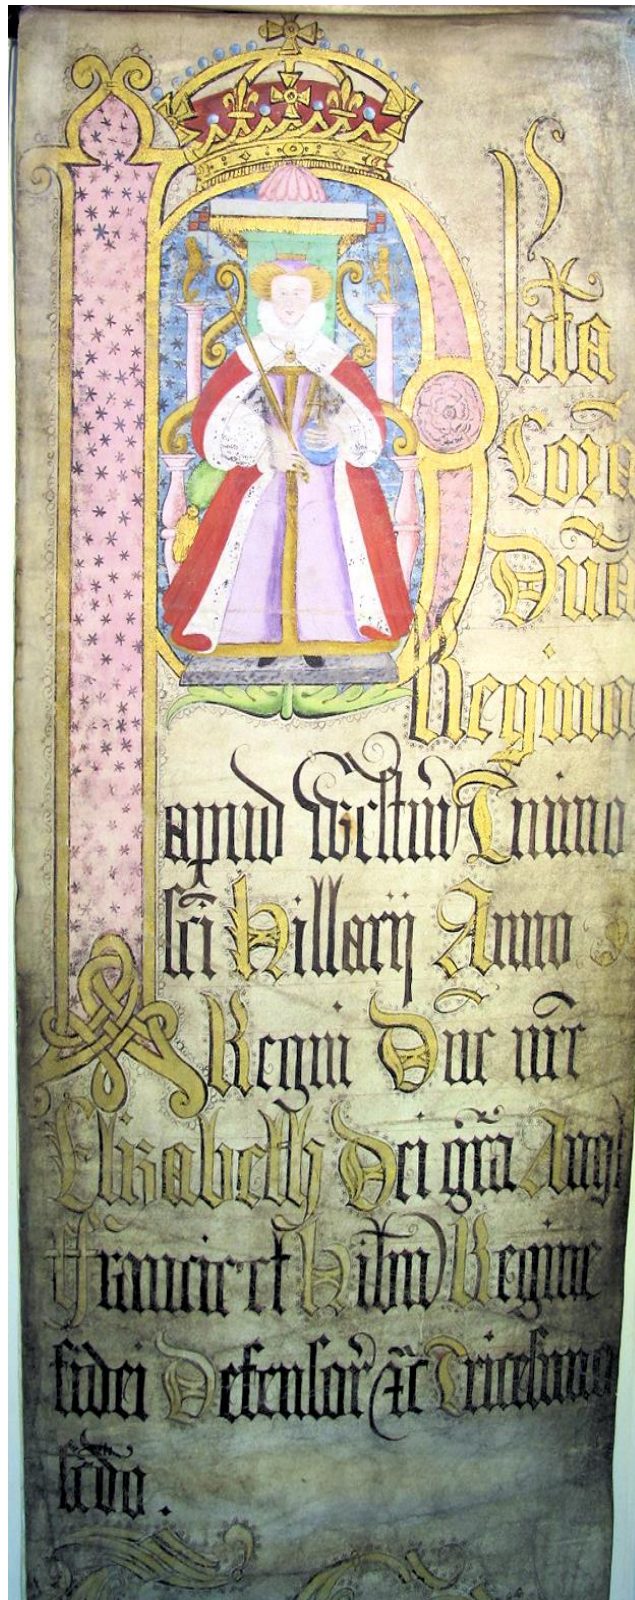 Plita
Cora
Dña
Regina
apud Westm̃ Tmino
sci Hillarij Anno
Regni Dñe nr̃e
Elizabeth Dei gr̃a Angl
Francie et Hibn Regine
fidei Defensor ac̃ Tricesimo
scdo.